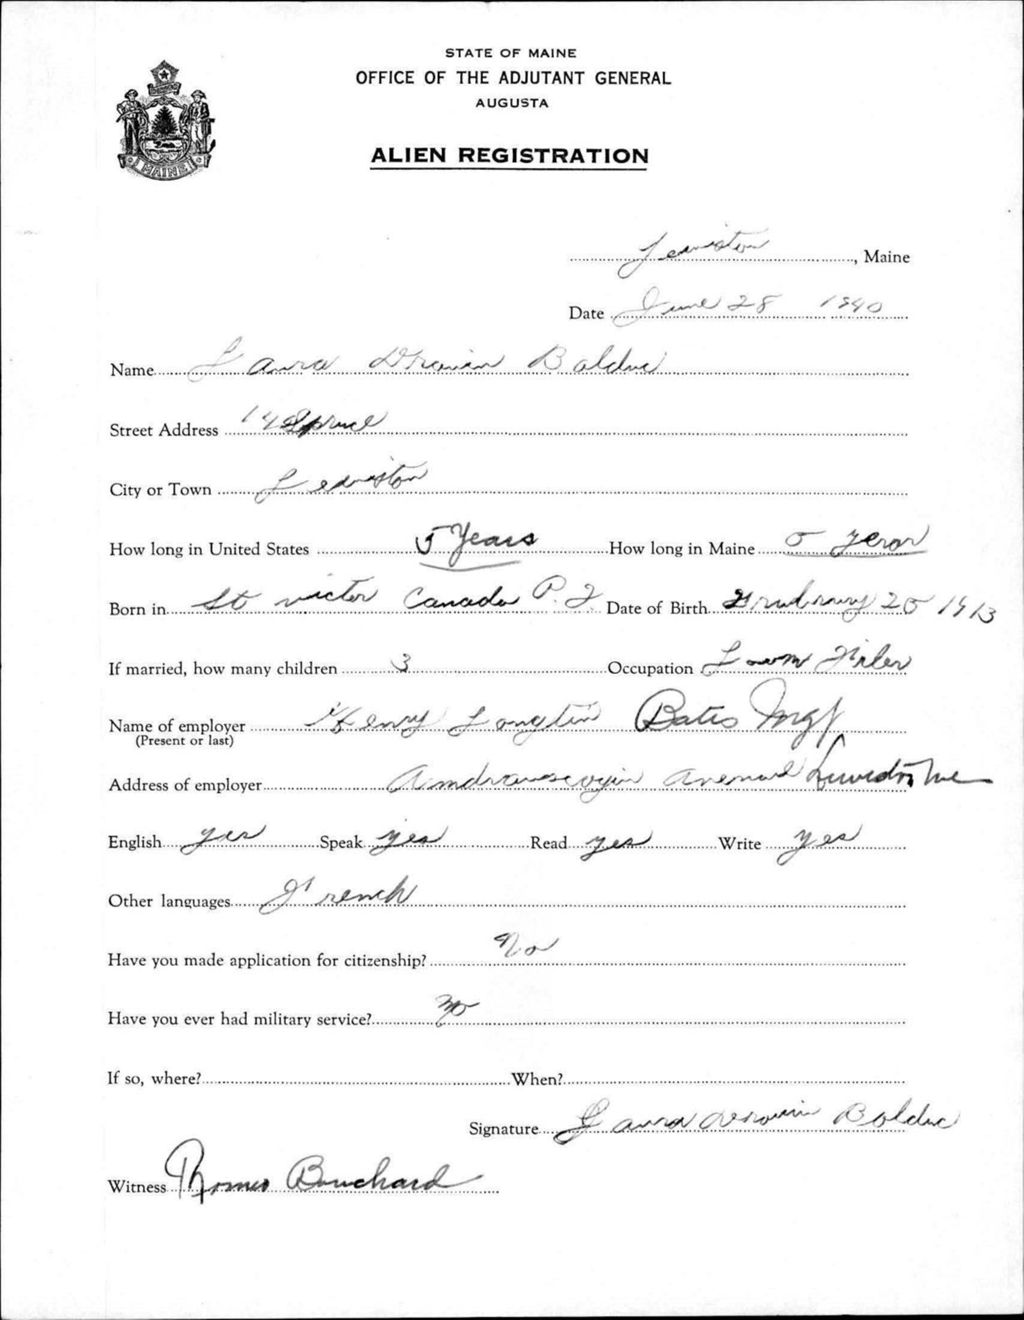 STATE OF MAINE
OFFICE OF THE ADJUTANT GENERAL
AUGUSTA
ALIEN REGISTRATION
MAINE
Lewiston, Maine
Date June 28 1940
Name Laura Drouin Bolduc
Street Address 14 Spruce
City or Town Lewiston
How long in United States 5 Years How long in Maine 5 year
Born in St victor Canada P. Q. Date of Birth 20 1913
If married, how many children 3 Occupation Loom
Name of employer Henry Longtin Bates Mfg
(Present or last)
Address of employer Lewiston Me
English yes Speak yes Read yes Write yes
Other languages French
Have you made application for citizenship? No
Have you ever had military service? no
If so, where? When?
Signature Laura Drouin Bolduc
Witness Romeo Bouchard